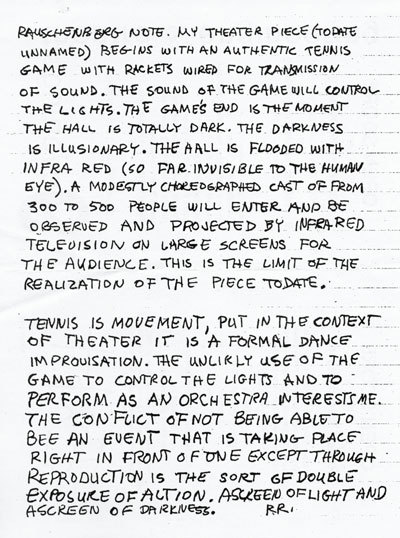 RAUSCHENBERG NOTE. MY THEATER PIECE (TO DATE
UNNAMED) BEGINS WITH AN AUTHENTIC TENNIS
GAME WITH RACKETS WIRED FOR TRANSMISSION
OF SOUND. THE SOUND OF THE GAME WILL CONTROL
THE LIGHTS. THE GAME'S END IS THE MOMENT
THE HALL IS TOTALLY DARK. THE DARKNESS
IS ILLUSIONARY. THE HALL IS FLOODED WITH
INFRA RED (SO FAR INVISIBLE TO THE HUMAN
EYE). A MODESTLY CHOREOGRAPHED CAST OF FROM
300 TO 500 PEOPLE WILL ENTER AND BE
OBSERVED AND PROJECTED BY INFRARED
TELEVISION ON LARGE SCREENS FOR
THE AUDIENCE. THIS IS THE LIMIT OF THE
REALIZATION OF THE PIECE TO DATE.
TENNIS IS MOVEMENT, PUT IN THE CONTEXT
OF THEATER IT IS A FORMAL DANCE
IMPROVISATION. THE UNLIKLY USE OF THE
GAME TO CONTROL THE LIGHTS AND TO
PERFORM AS AN ORCHESTRA INTERESTS ME.
THE CONFLICT OF NOT BEING ABLE TO
BEE AN EVENT THAT IS TAKING PLACE
RIGHT IN FRONT OF ONE EXCEPT THROUGH
REPRODUCTION IS THE SORT OF DOUBLE
EXPOSURE OF ACTION. A SCREEN OF LIGHT AND
A SCREEN OF DARKNESS. R.R.